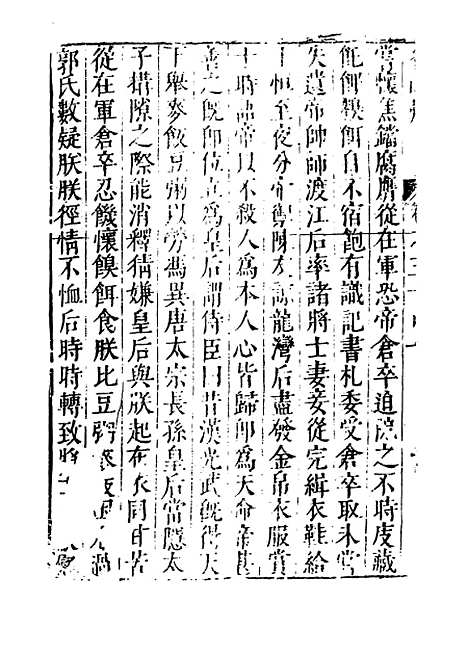 嘗懷焦鐺腐脯從在軍恐帝倉卒迫隘之不時庋藏
飥餌糗餌自不宿飽有識記書札委受倉卒取未嘗
失遺帝帥師渡江后率諸將士妻妾從完緝衣鞋給
士恒至夜分帝禦陳友諒龍灣后盡發金帛衣服賞
士時語帝以不殺人為本人心皆歸即為天命帝甚
善之既即位立為皇后謂侍臣曰昔漢光武既得天
下舉麥飯豆粥以勞馮異唐太宗長孫皇后當隱太
子搆隙之際能消釋猜嫌皇后與朕起在布衣同甘苦
從在軍倉卒忍饑懷餱餌食朕比豆粥麥飯
郭氏數疑朕朕徑情不恤后時時轉致